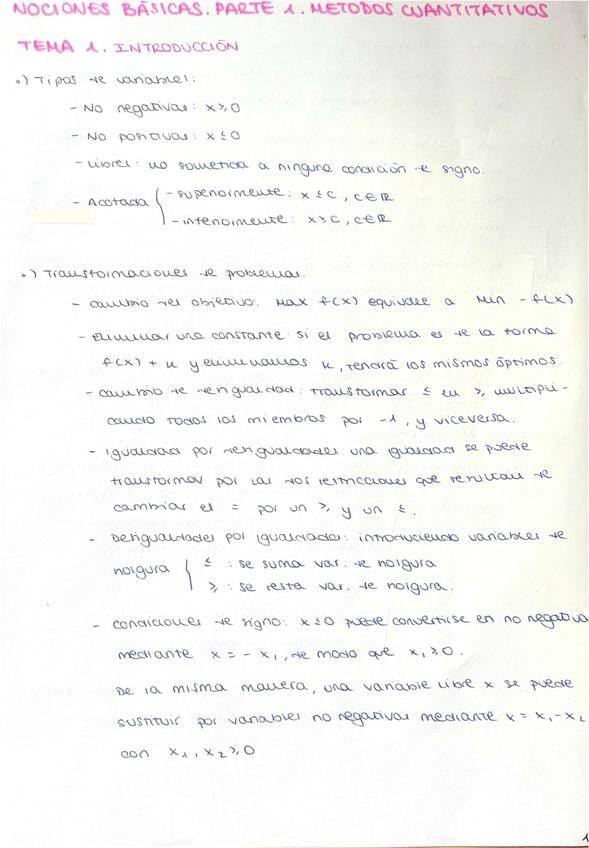 NOCIONES BÁSICAS. PARTE 1. METODOS CUANTITATIVOS
TEMA 1. INTRODUCCIÓN
•) Tipos de variables:
- No negativas: x ≥ 0
- No positivas: x ≤ 0
- Libres: no sometida a ninguna condición de signo.
- Acotada { - superiormente: x ≤ c, c ∈ ℝ
- inferiormente: x ≥ c, c ∈ ℝ
•) Transformaciones de problemas.
- cambio del objetivo. Max f(x) equivale a Min - f(x)
- Eliminar una constante: si el problema es de la forma
f(x) + k y eliminamos k, tendrá los mismos óptimos.
- cambio de desigualdad: transformar ≤ en ≥, multipli-
cando todos los miembros por -1, y viceversa.
- igualdad por desigualdades. una igualdad se puede
transformar por las dos restricciones que resultan de
cambiar el = por un ≥ y un ≤.
- Desigualdades por igualdades: introduciendo variables de
holgura { ≤ : se suma var. de holgura
≥ : se resta var. de holgura.
- condiciones de signo: x ≤ 0 puede convertirse en no negativa
mediante x = - x₁, de modo que x₁ ≥ 0.
De la misma manera, una variable libre x se puede
sustituir por variables no negativas mediante x = x₁ - x₂
con x₁, x₂ ≥ 0
1